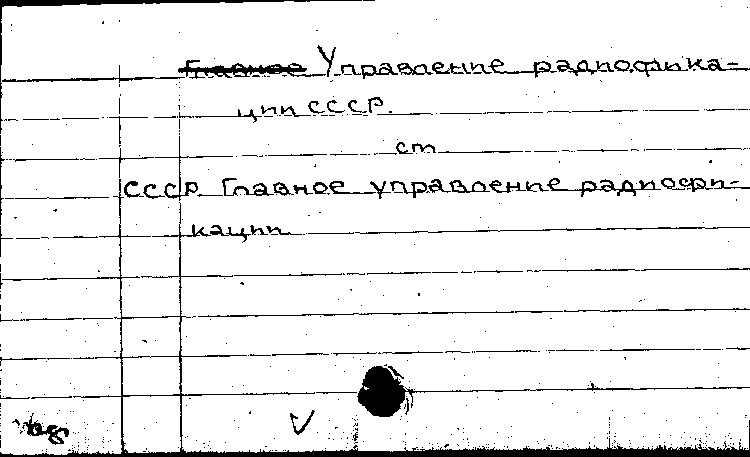 Главное Управление радиофика-
ции СССР.
ст
СССР. Главное управление радиофи-
кации